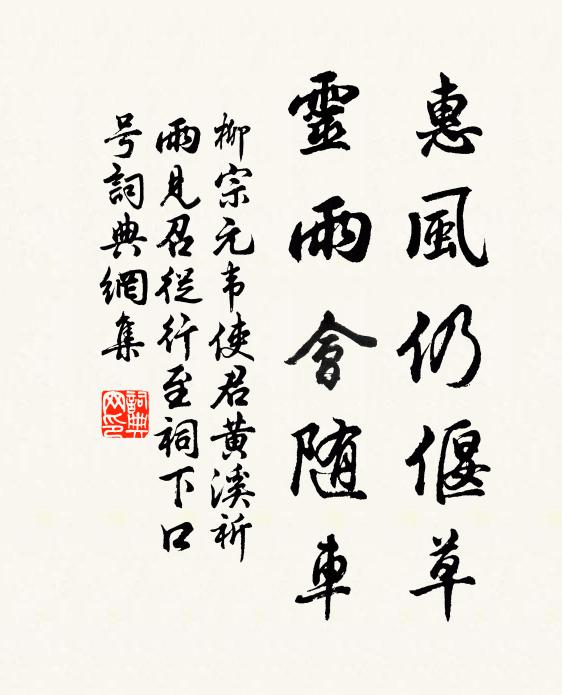 惠風仍偃草
靈雨會随車
柳宗元韦使君黄溪祈
雨见召從行至祠下口
号詞典網集
詞典网印